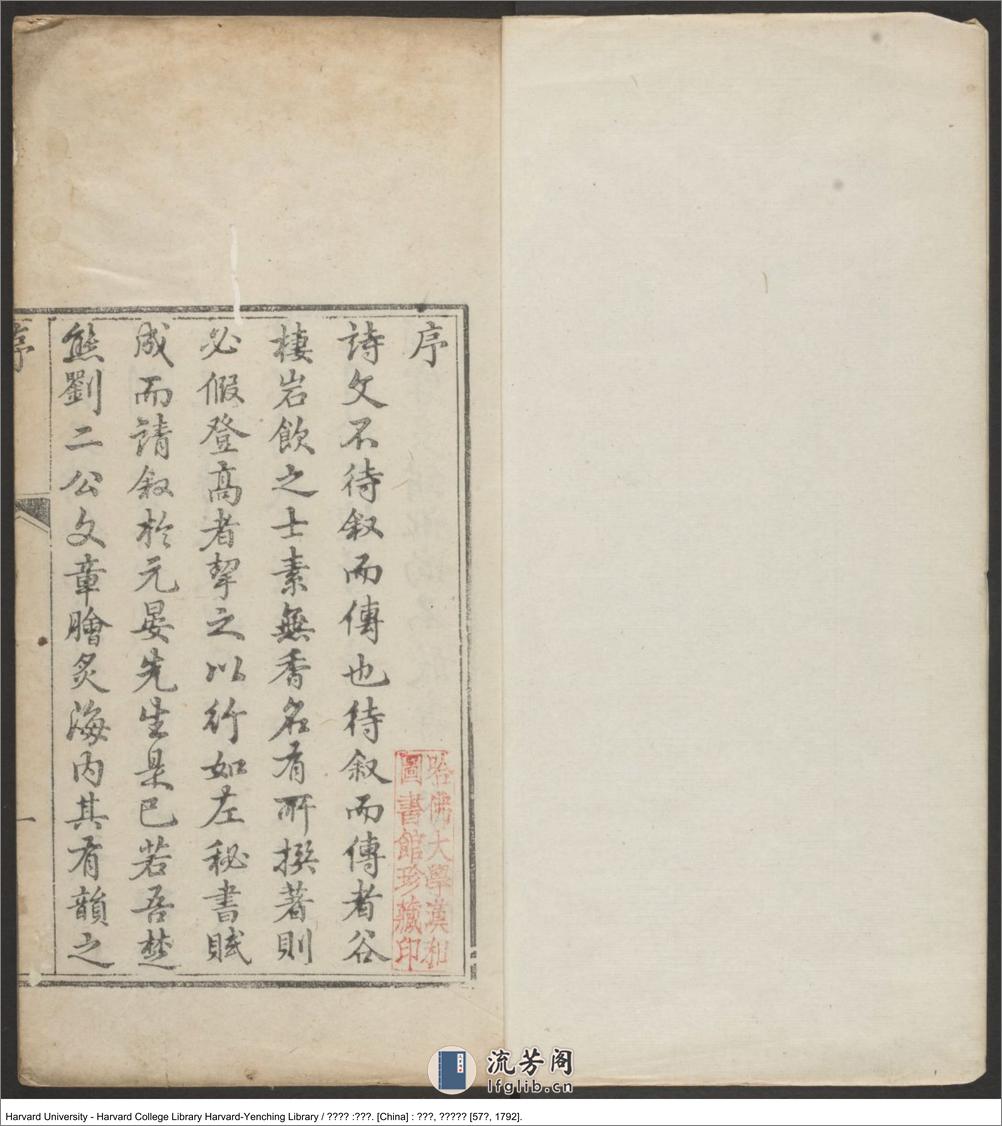 序
詩文不待叙而傳也待叙而傳者谷
棲岩飲之士素無香名有所撰著則
必假登高者挈之以行如左秘書賦
成而請叙於元晏先生是已若吾楚
熊劉二公文章膾炙海内其有韻之
序
一
哈佛大學漢和
圖書館珍藏印
流芳阁
lfglib.cn
Harvard University - Harvard College Library Harvard-Yenching Library / ???? :???. [China] : ???, ????? [57?, 1792].